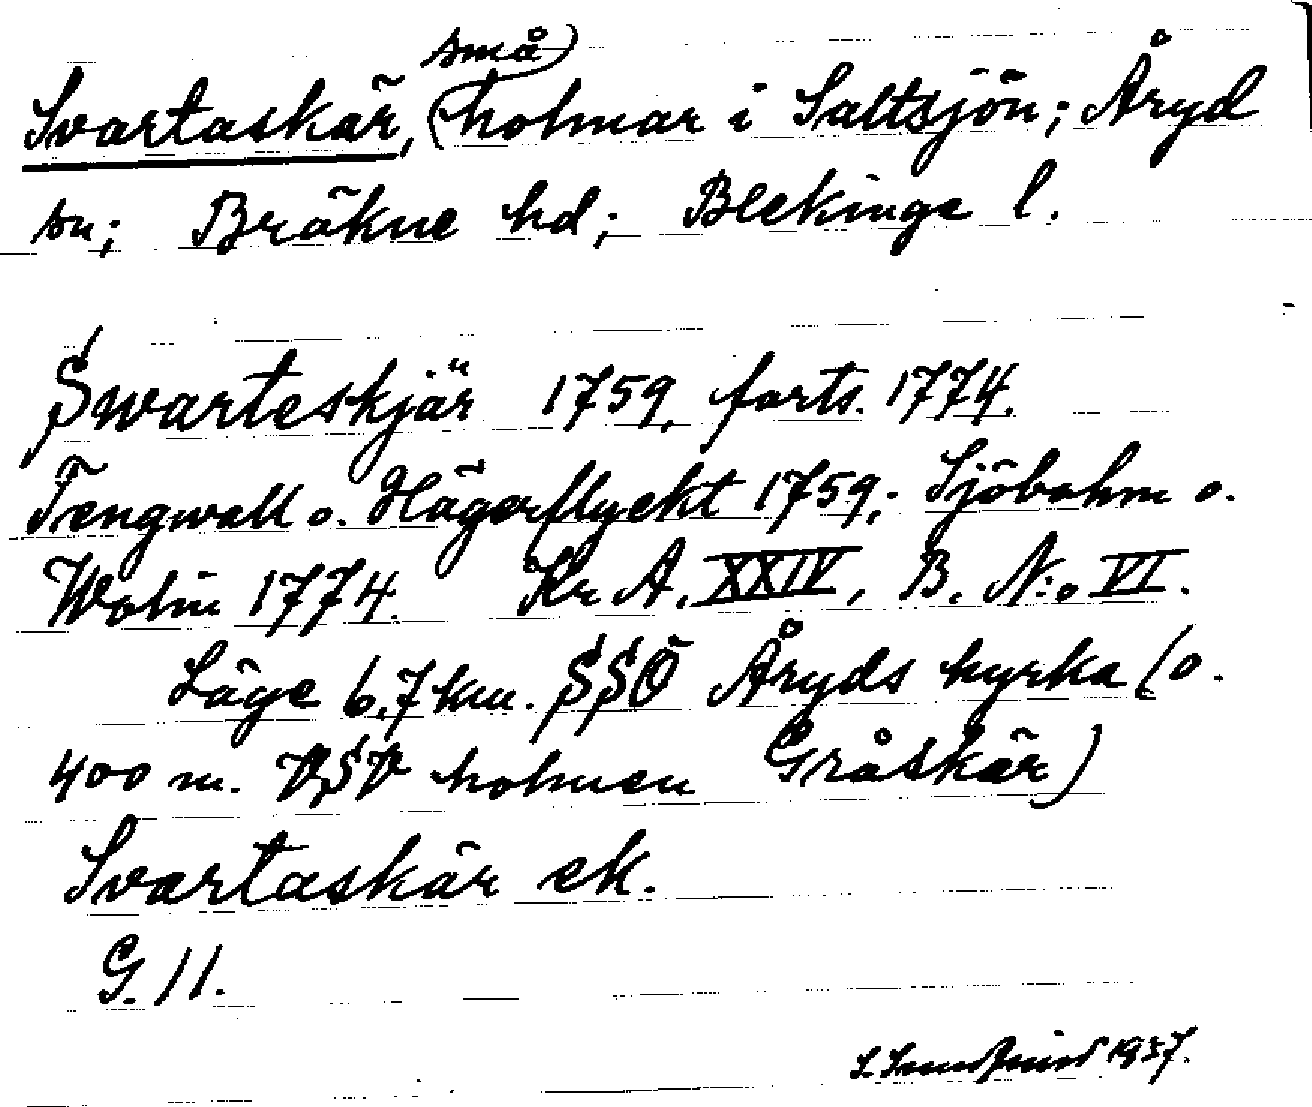 Svartaskär, (små) holmar i Saltsjön; Åryd
sn; Bräkne hd; Blekinge l.
Swarteskjär 1759, forts. 1774.
Tengwall o. Hägerflyckt 1759; Sjöbohm o.
Wolin 1774. Kr. A. XXIV, B. N:o VI.
Läge 6,7 km. SSÖ Åryds kyrka (o.
400 m. VSV holmen Gråskär)
Svartaskär ek.
G. 11.
1937.